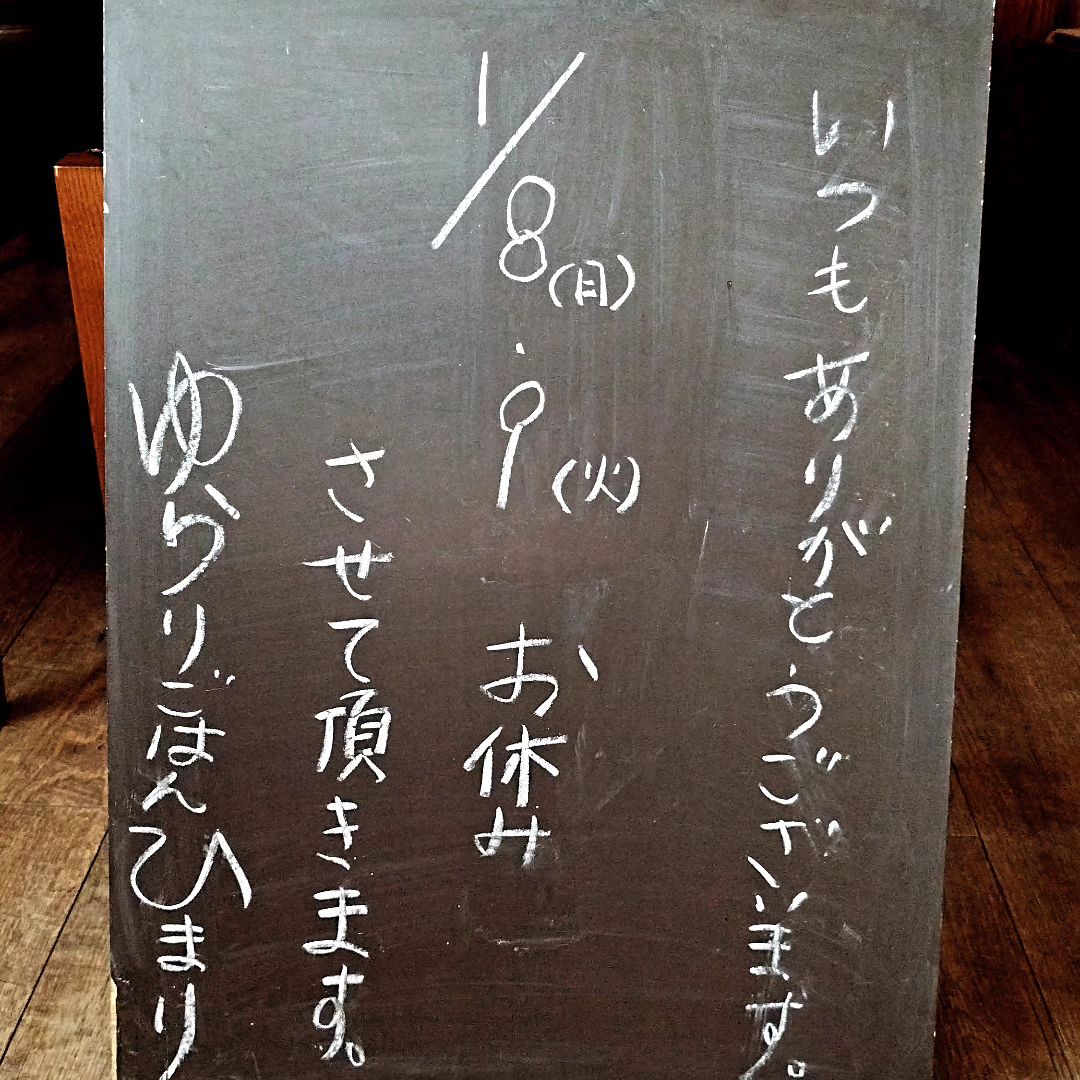 いつもありがとうございます。
1/8(月)・9(火)お休み
させて頂きます。
ゆらりごはんひまり